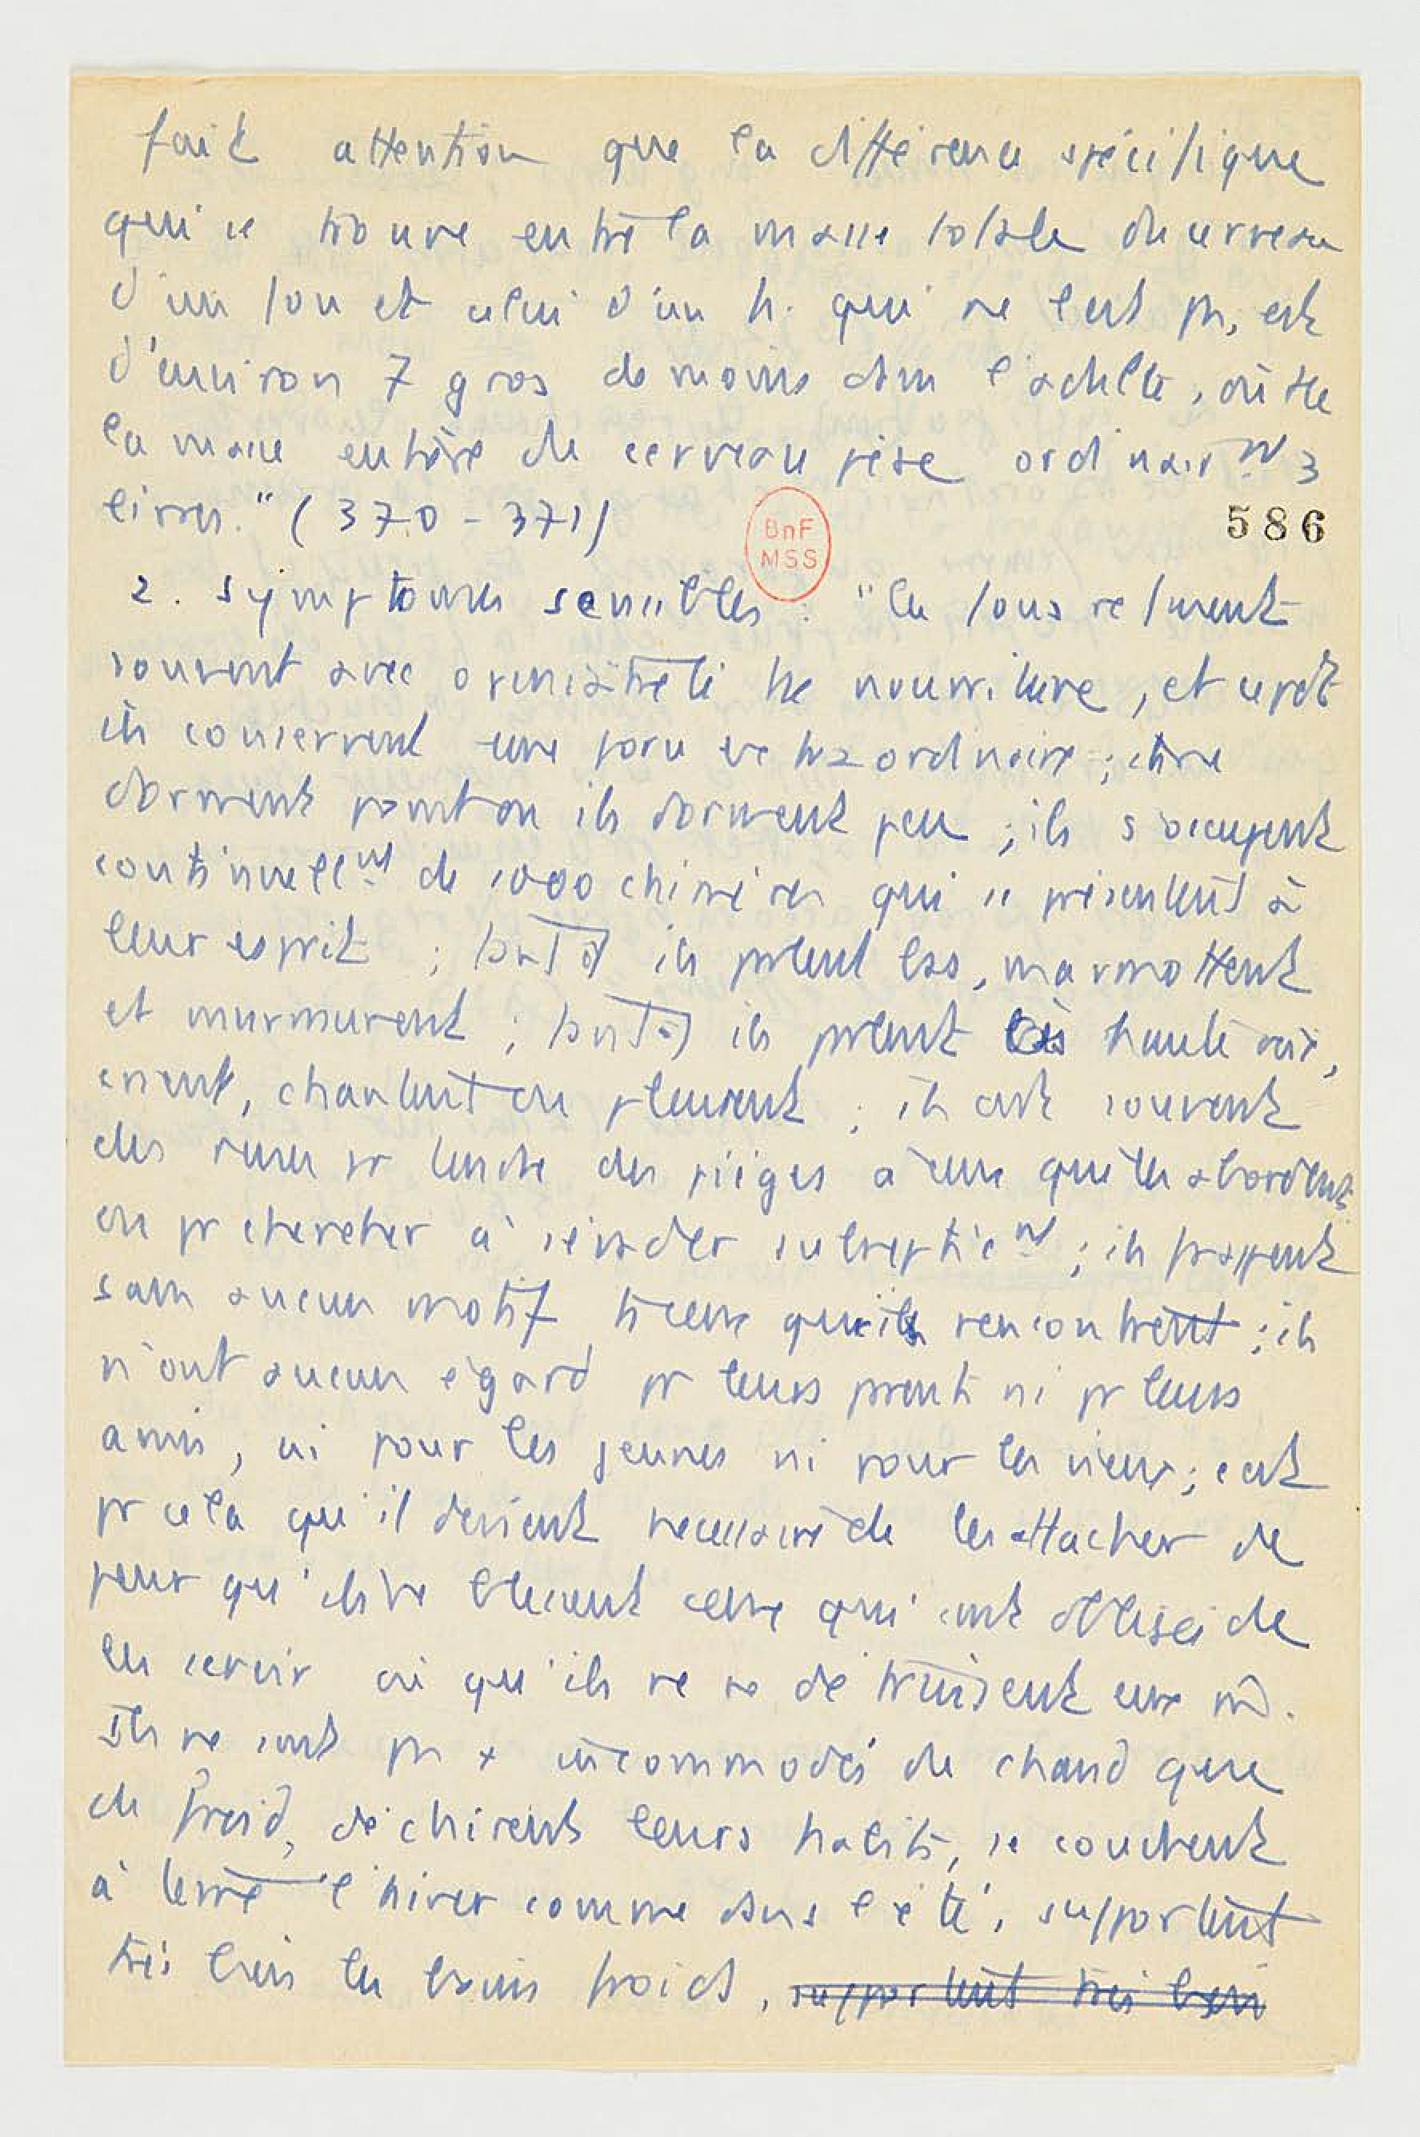 fait attention que la différence spécifique
qui se trouve entre la masse totale du cerveau
d'un fou et celui d'un h. qui ne l'est ps, est
d'environ 7 gros de moins dans l'adulte, où tte
la masse entière du cerveau pèse ordinairnt 3
livres." (370-371)
BnF
MSS
586
2. Symptomes sensibles : "les fous refusent
souvent avec opiniâtreté tte nourriture, et cpdt
ils conservent une force extraordinaire ; ils ne
dorment point ou ils dorment peu ; ils s'occupent
continuellnt de 1000 chimères qui se présentent à
leur esprit ; tantôt ils prlent bas, marmottent
et murmurent ; tantôt ils prlent à haute voix,
crient, chantent ou pleurent ; ils ont souvent
des ruses pr tendre des pièges à ceux qui les abordent
ou pr chercher à s'évader subrepticnt ; ils frappent
sans aucun motif ts ceux qu'ils rencontrent ; ils
n'ont aucun égard pr leurs prents ni pr leurs
amis, ni pour les jeunes ni pour les vieux ; c'est
pr cela qu'il devient necessaire de les attacher de
peur qu'ils ne blessent ceux qui sont obligés de
les servir ou qu'ils ne se détruisent eux m̂.
Ils ne sont ps + incommodés du chaud que
du froid, déchirent leurs habits, se couchent
à terre l'hiver comme dans l'été, supportent
très bien les bains froids, supportent très bien